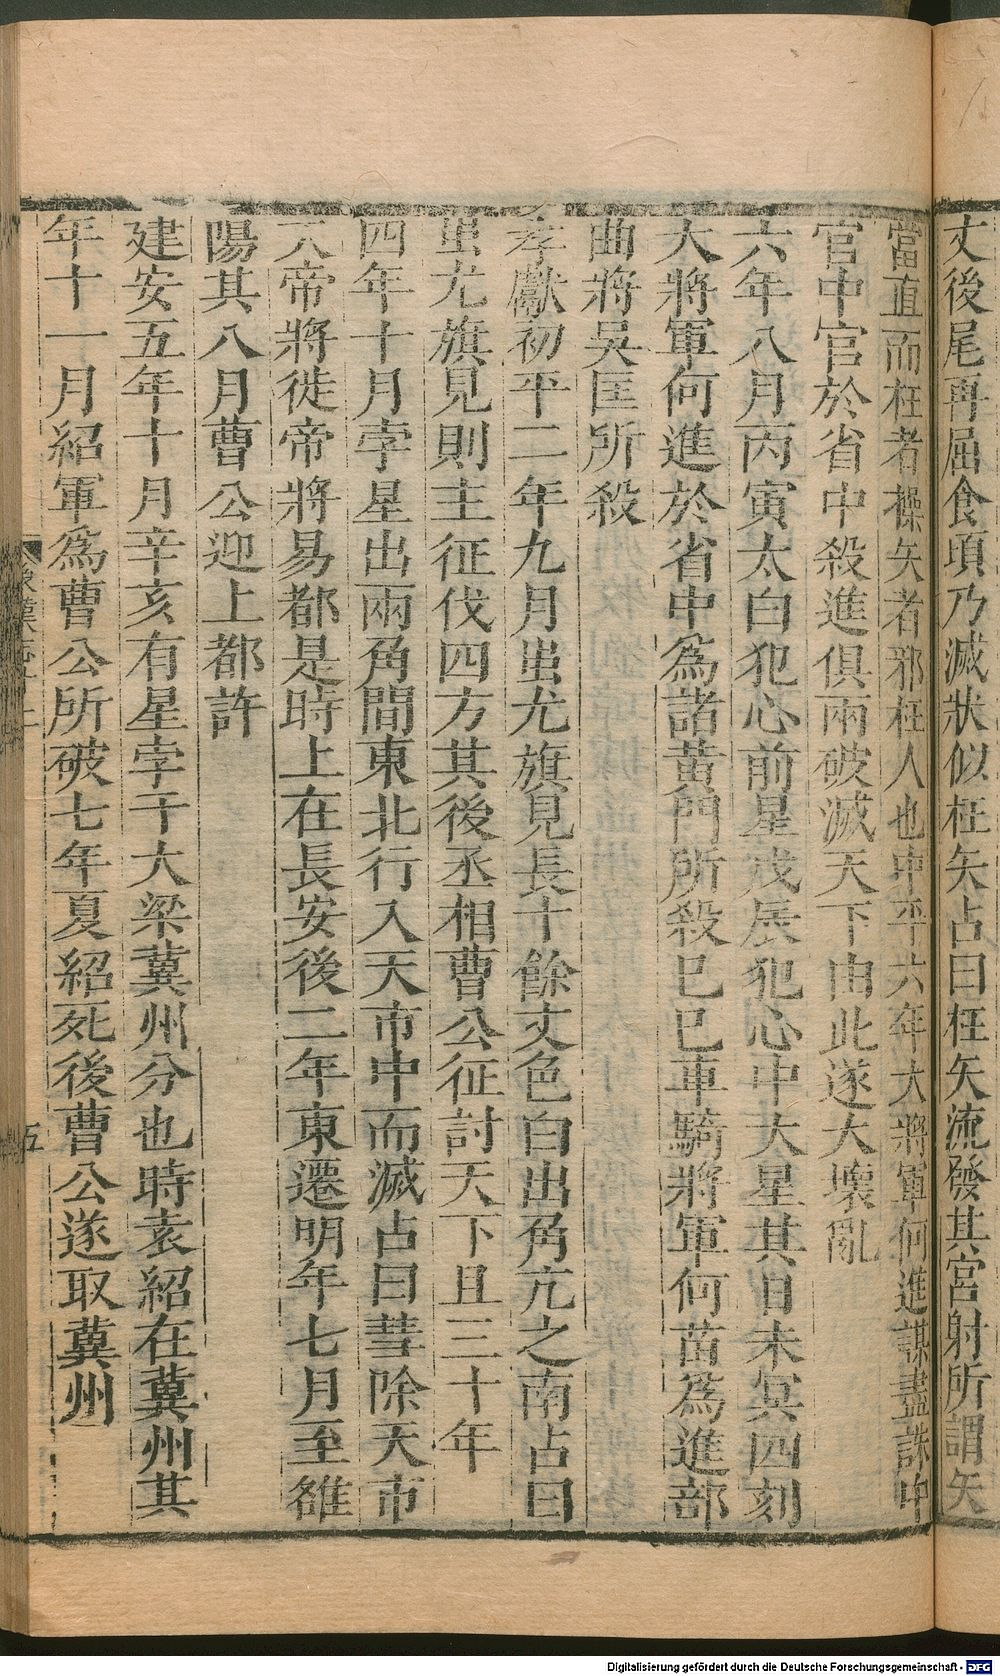 丈後尾再屈食頃乃滅狀似枉矢占曰枉矢流發其宮射所謂矢
當直而枉者操矢者邪枉人也中平六年大將軍何進謀盡誅中
官中官於省中殺進俱兩破滅天下由此遂大壞亂
六年八月丙寅太白犯心前星戊辰犯心中大星其日未冥四刻
大將軍何進於省中爲諸黃門所殺己巳車騎將軍何苗爲進部
曲將吳匡所殺
孝獻初平二年九月蚩尤旗見長十餘丈色白出角亢之南占曰
蚩尤旗見則主征伐四方其後丞相曹公征討天下且三十年
四年十月孛星出兩角間東北行入天市中而滅占曰彗除天市
天帝將徙帝將易都是時上在長安後二年東遷明年七月至雒
陽其八月曹公迎上都許
建安五年十月辛亥有星孛于大梁冀州分也時袁紹在冀州其
年十一月紹軍爲曹公所破七年夏紹死後曹公遂取冀州
五
Digitalisierung gefördert durch die Deutsche Forschungsgemeinschaft - DFG